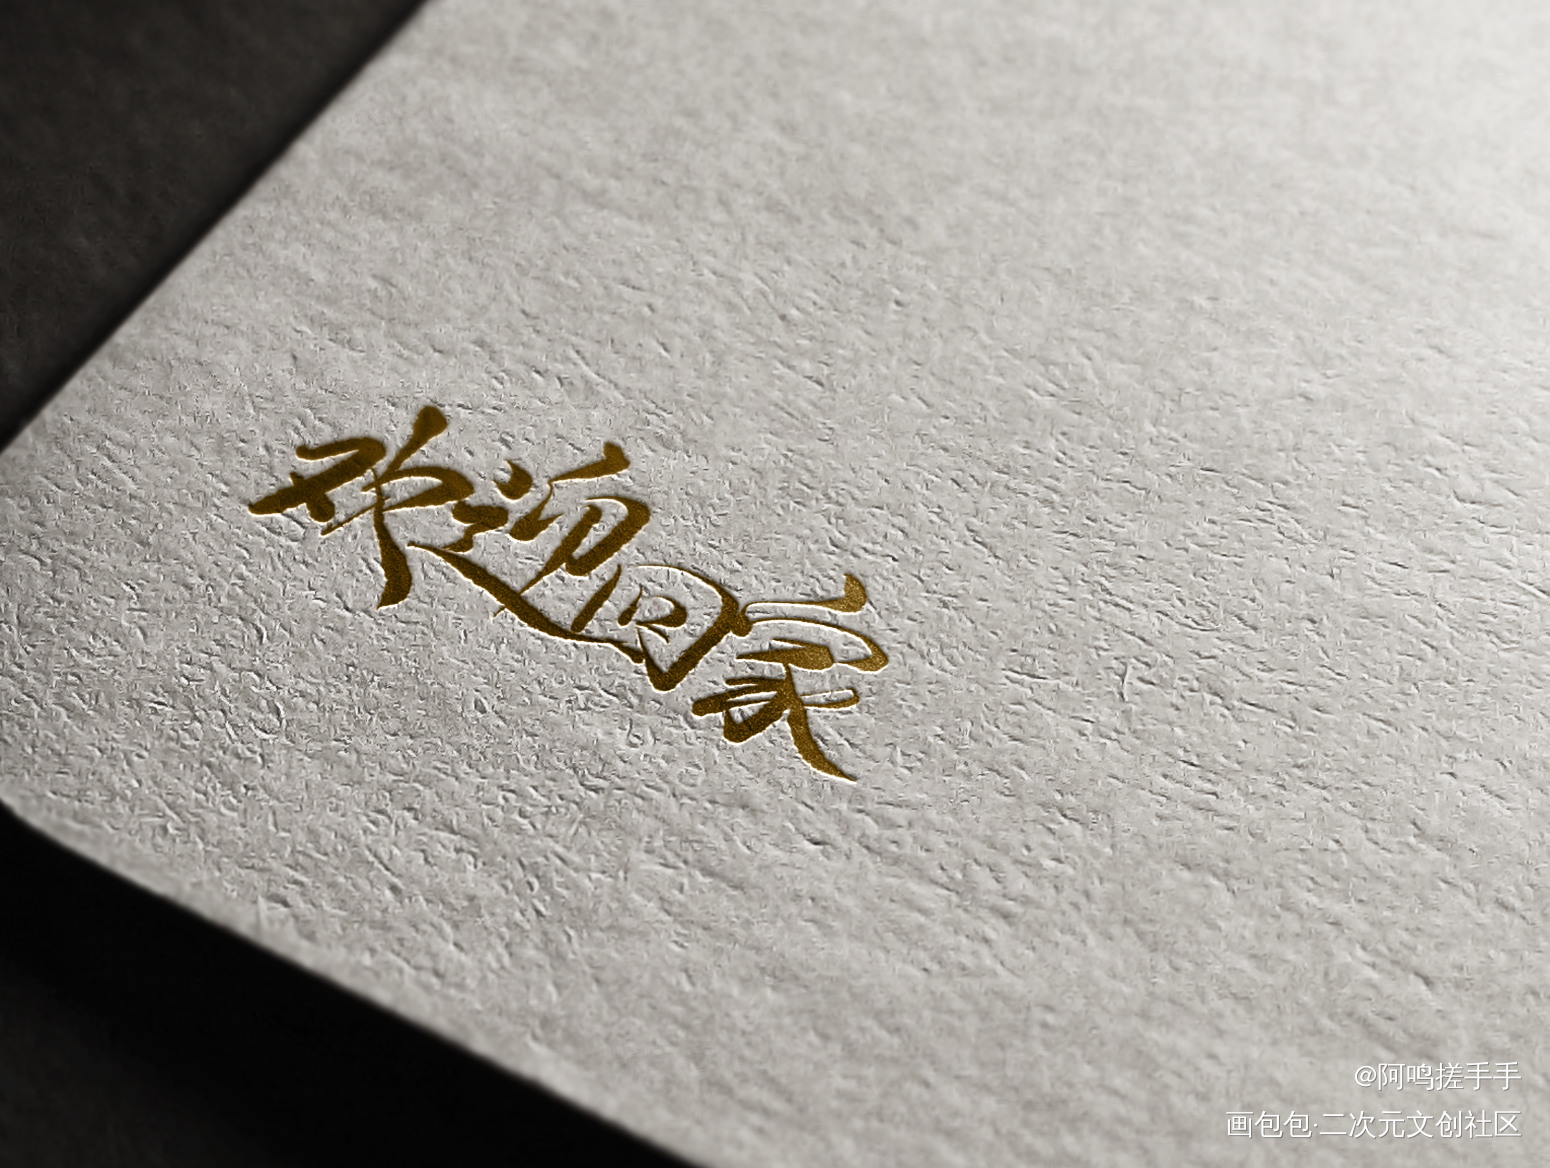 欢迎回家
@阿鸣搓手手
画包包·二次元文创社区